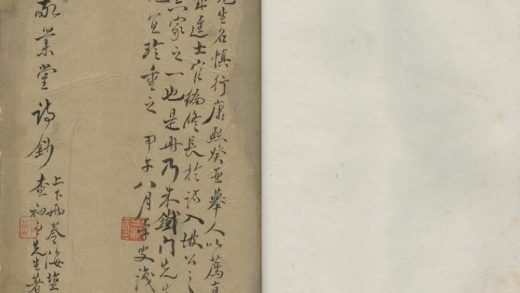 先生名慎行康熙癸酉舉人以薦直
未進士官編修長於詩入坡公之
六家之一也是冊乃朱鐵門先生
宜珍重之 甲午八月 叟識
敬業堂詩鈔 上下兩卷海鹽
查初白先生著